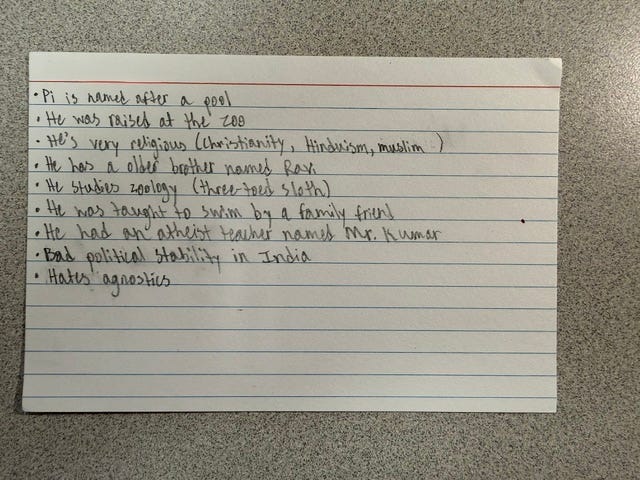 • Pi is named after a pool
• He was raised at the zoo
• He's very religious (Christianity, Hinduism, muslim )
• He has a older brother named Ravi
• He studies zoology (three-toed sloth)
• He was taught to swim by a family friend
• He had an atheist teacher named Mr. Kumar
• Bad political stability in India
• Hates agnostics